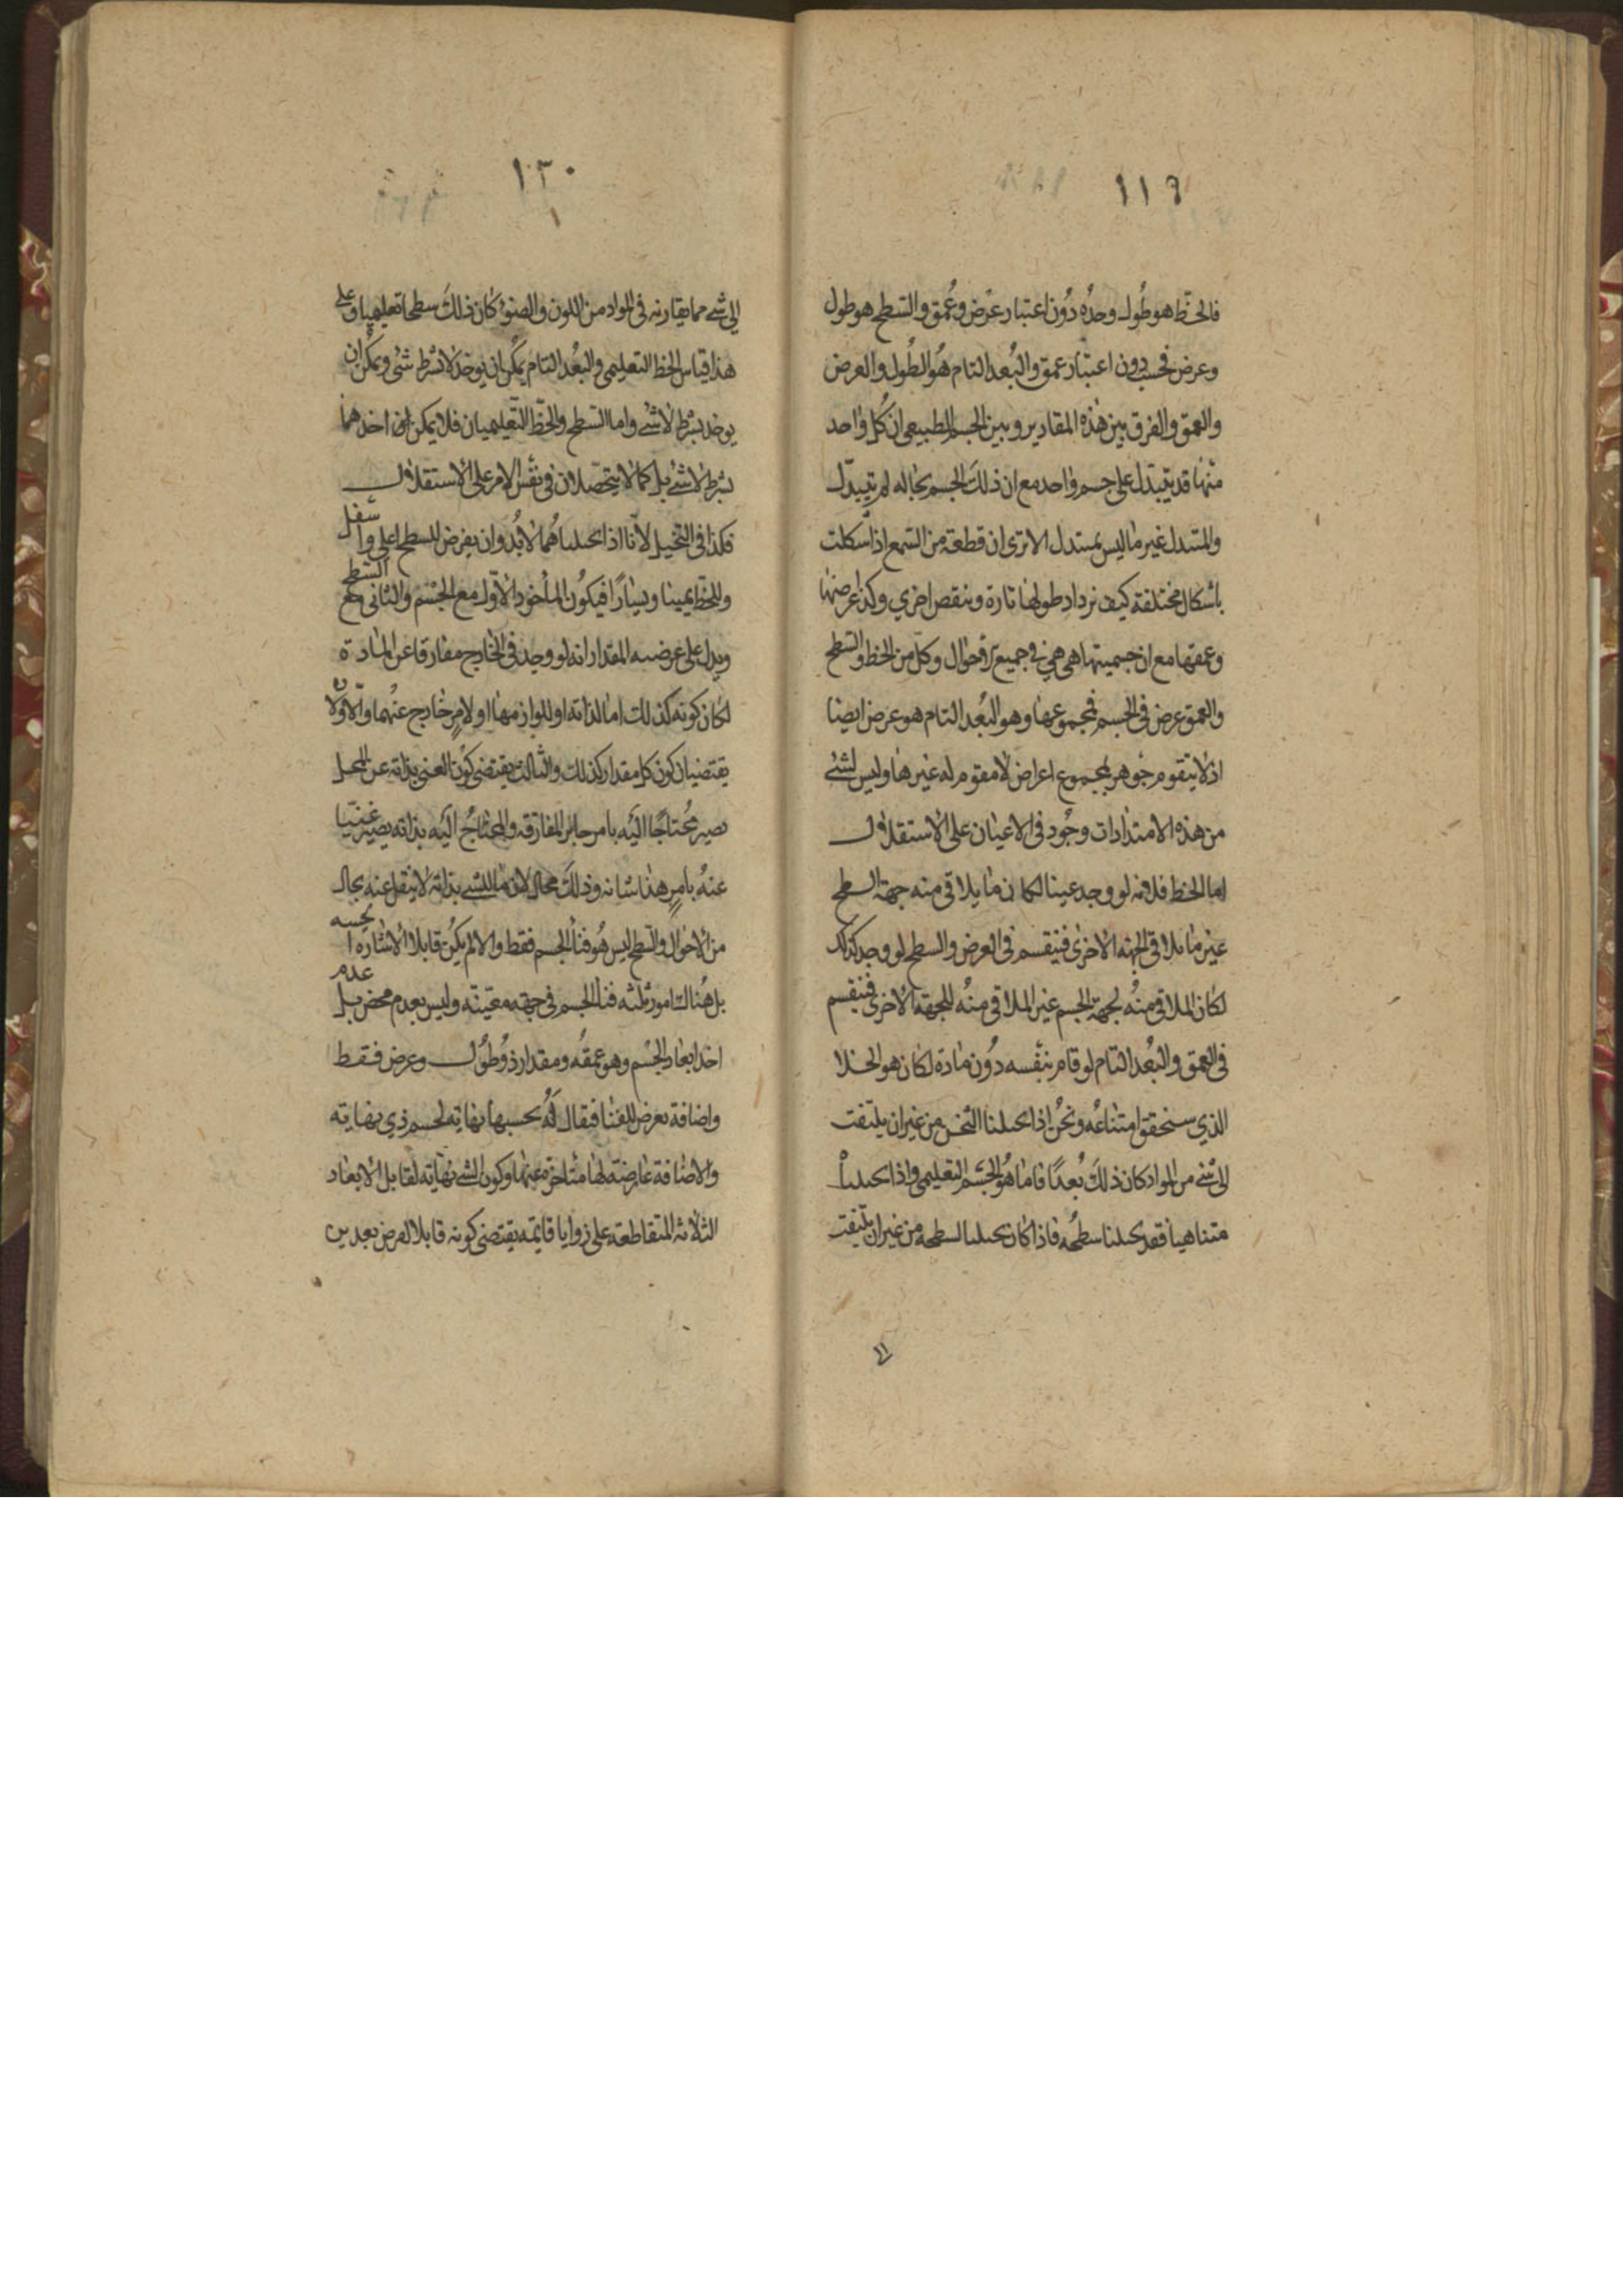 ١١٩
فالخط هو طول وحده دون اعتبار عرض وعمق والسطح هو طول
وعرض فحسب دون اعتبار عمق والبعد التام هو الطول والعرض
والعمق والفرق بين هذه المقادير وبين الجسم الطبيعي ان كل واحد
منها قد يتبدل على جسم واحد مع ان ذلك الجسم بحاله لم يتبدل
والمتبدل غير ما ليس بمتبدل الا ترى ان قطعة من الشمع اذا شكلت
باشكال مختلفة كيف يزداد طولها تارة وينقص اخري وكذا عرضها
وعمقها مع ان جسميتها هي هي في جميع الاحوال وكل من الخط والسطح
والعمق عرض في الجسم فمجموعها وهو البعد التام هو عرض ايضا
اذ لا يتقوم جوهر بمجموع اعراض لا مقوم له غيرها وليس لشئ
من هذه الامتدادات وجود في الاعيان على الاستقلال
اما الخط فلانه لو وجد عينا لكان ما يلاقي منه جهة السطح
غير ما يلاقي الجهة الاخرى فينقسم في العرض والسطح لو وجد كذلك
لكان الملاقي منه لجهة الجسم غير الملاقي منه للجهة الاخرى فينقسم
في العمق والبعد التام لو قام بنفسه دون مادة لكان هو الخلا
الذي سنحقق امتناعه ونحن اذا تخيلنا الثخن من غير ان يلتفت
الى شئ من المواد كان ذلك بعدا تاما هو الجسم التعليمي واذا تخيلنا
متناهيا فقد تخيلنا سطحه فاذا كان تخيلنا لسطحه من غير ان يلتفت
١٢٠
الى شئ مما يقارنه في المواد من اللون والضوء كان ذلك سطحا تعليميا وعلى
هذا قياس الخط التعليمي والبعد التام يمكن ان يوخذ لا بشرط شئ ويمكن ان
يوخذ بشرط لا شئ واما السطح والخط التعليميان فلا يمكن اخذهما
بشرط لا شئ بل كما لا يتحصلان في نفس الامر على الاستقلال
فكذا في التخيل لانا اذا تخيلناهما لا بد وان يفرض للسطح اعلى واسفل
وللخط يمينا ويسارا فيكون الماخوذ الاول مع الجسم والثاني مع السطح
ويدل على عرضيه المقدار انه لو وجد في الخارج مفارقا عن المادة
لكان كونه كذلك اما لذاته او للوازمها او لامر خارج عنهما والاولان
يقتضيان كون كل مقدار كذلك والثالث يقتضي كون الغني بذاته عن المحل
يصير محتاجا اليه بامر جايز المفارقه والمحتاج اليه بذاته يصير غنيا
عنه بامر هذا شانه وذلك محال لان ما للشئ بذاته لا ينفك عنه بحال
من الاحوال والسطح ليس هو فنا الجسم فقط والا لم يكن قابلا للاشارة الحسيه
بل هناك امور ثلثه فنا الجسم في جهة معينة وليس بعدم محض بل عدم
احد ابعاد الجسم وهو عمقه ومقدار ذو طول وعرض فقط
واضافة تعرض للفنا فيقال له بحسبها نهاية لجسم ذي نهاية
والاضافة عارضة لها متاخرة عنها وكون الشئ نهاية لقابل الابعاد
الثلاثه المتقاطعة على زوايا قايمة يقتضي كونه قابلا لفرض بعدين